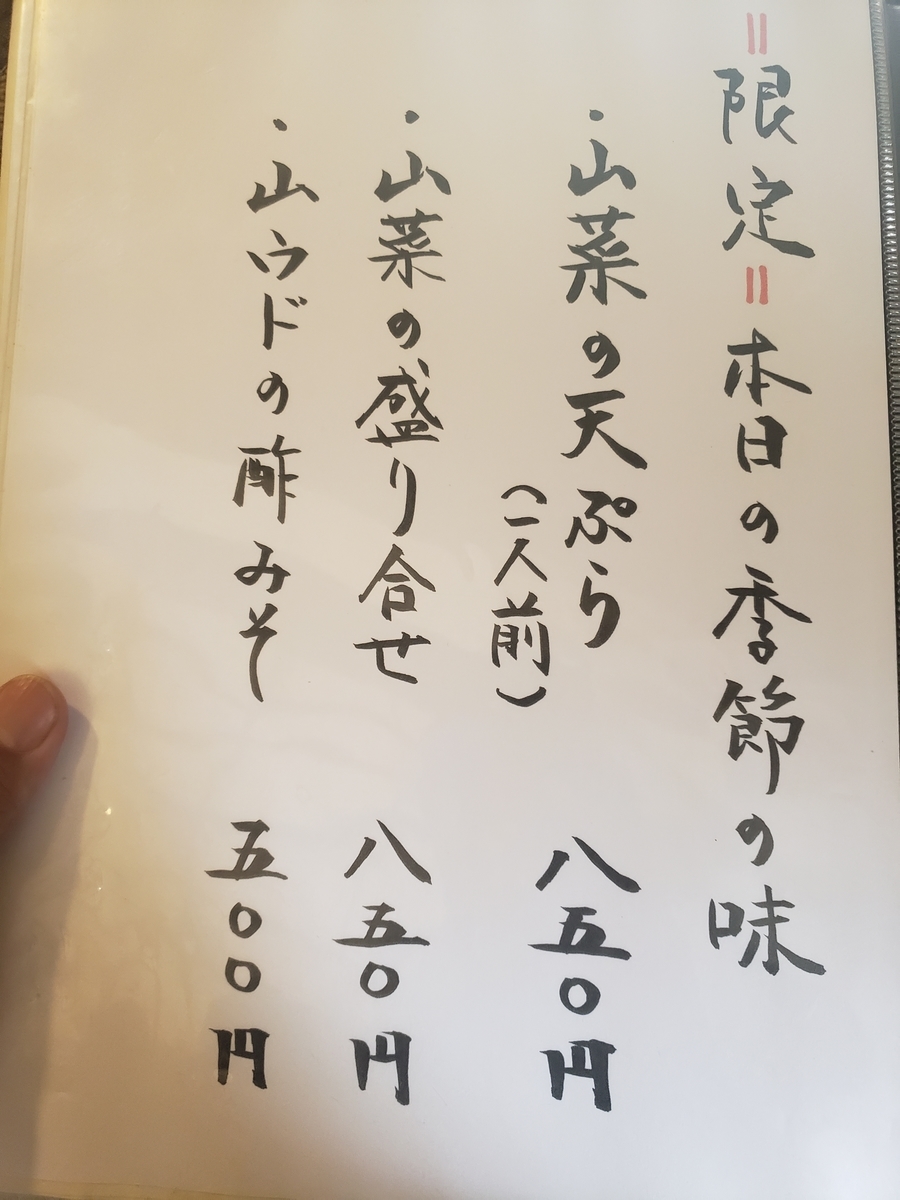 =限定=本日の季節の味
・山菜の天ぷら 八五〇円
(一人前)
・山菜の盛り合せ 八五〇円
・山ウドの酢みそ 五〇〇円